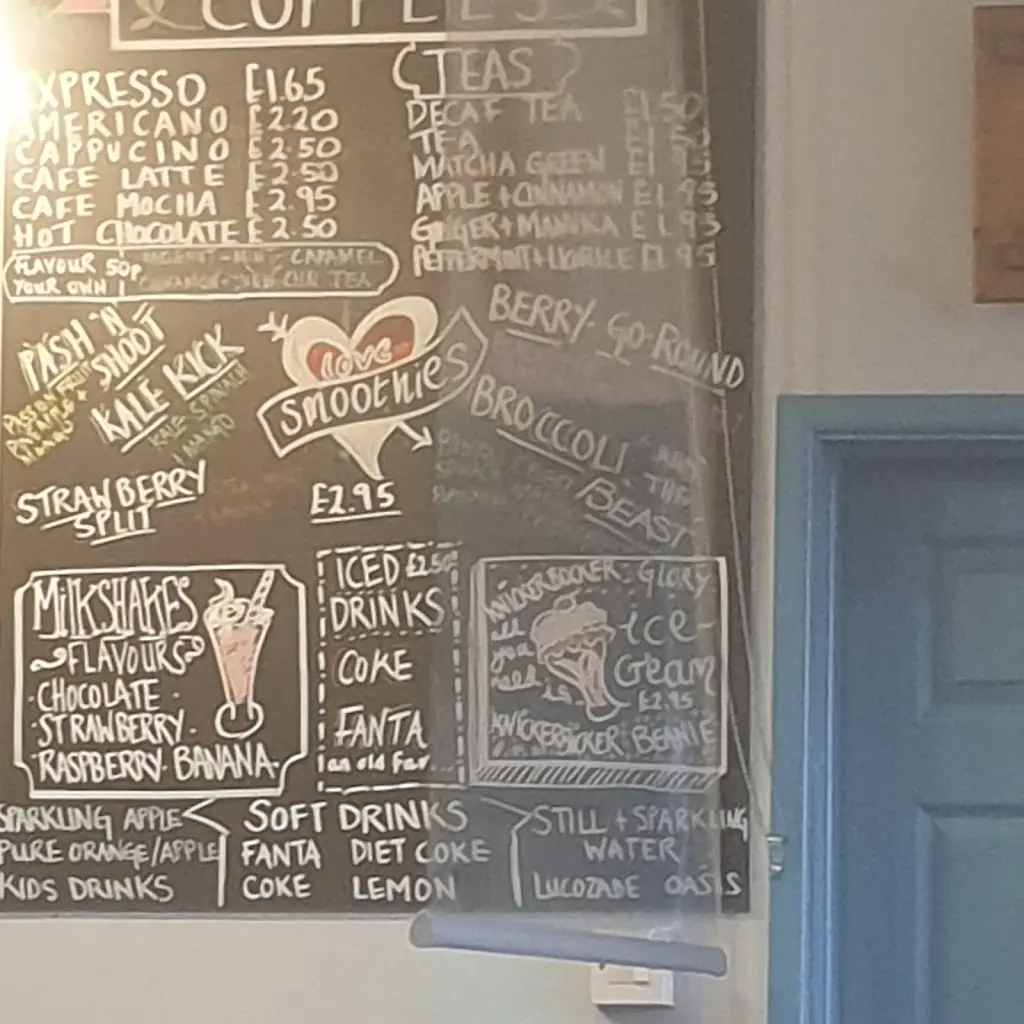 COFFEES
EXPRESSO £1.65
AMERICANO £2.20
CAPPUCINO £2.50
CAFE LATTE £2.50
CAFE MOCHA £2.95
HOT CHOCOLATE £2.50
FLAVOUR 50p CARAMEL
YOUR OWN ! CHAI TEA
TEAS
DECAF TEA £1.50
TEA £1.50
MATCHA GREEN £1.95
APPLE + CINNAMON £1.95
GINGER + MANUKA £1.95
PEPPERMINT + LICORICE £1.95
PASH 'N'
SHOOT
PASSIONFRUIT
PINEAPPLE +
MANGO
KALE KICK
KALE SPINACH
MANGO
LOVE
SMOOTHIES
£2.95
BERRY-GO-ROUND
BROCCOLI "AND
THE
BEAST
STRAWBERRY
SPLIT
MILKSHAKES
FLAVOURS
·CHOCOLATE·
·STRAWBERRY·
·RASPBERRY·BANANA·
ICED £2.50
DRINKS
COKE
FANTA
an old fav...
KNICKERBOCKER GLORY
all
you
need
is
ice-
cream
£2.95
KNICKERBOCKER BEANIE
SPARKLING APPLE
PURE ORANGE/APPLE
KIDS DRINKS
SOFT DRINKS
FANTA DIET COKE
COKE LEMON
STILL + SPARKLING
WATER
LUCOZADE OASIS